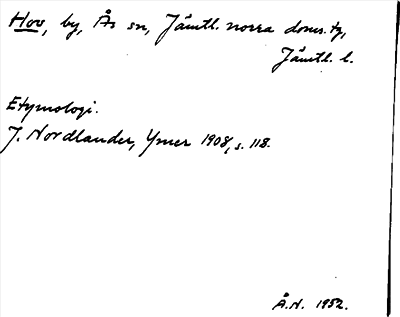 Hov, by, Ås sn, Jämtl. norra doms. tg,
Jämtl. l.
Etymologi.
J. Nordlander, Ymer 1908, s. 118.
Å.N. 1952.